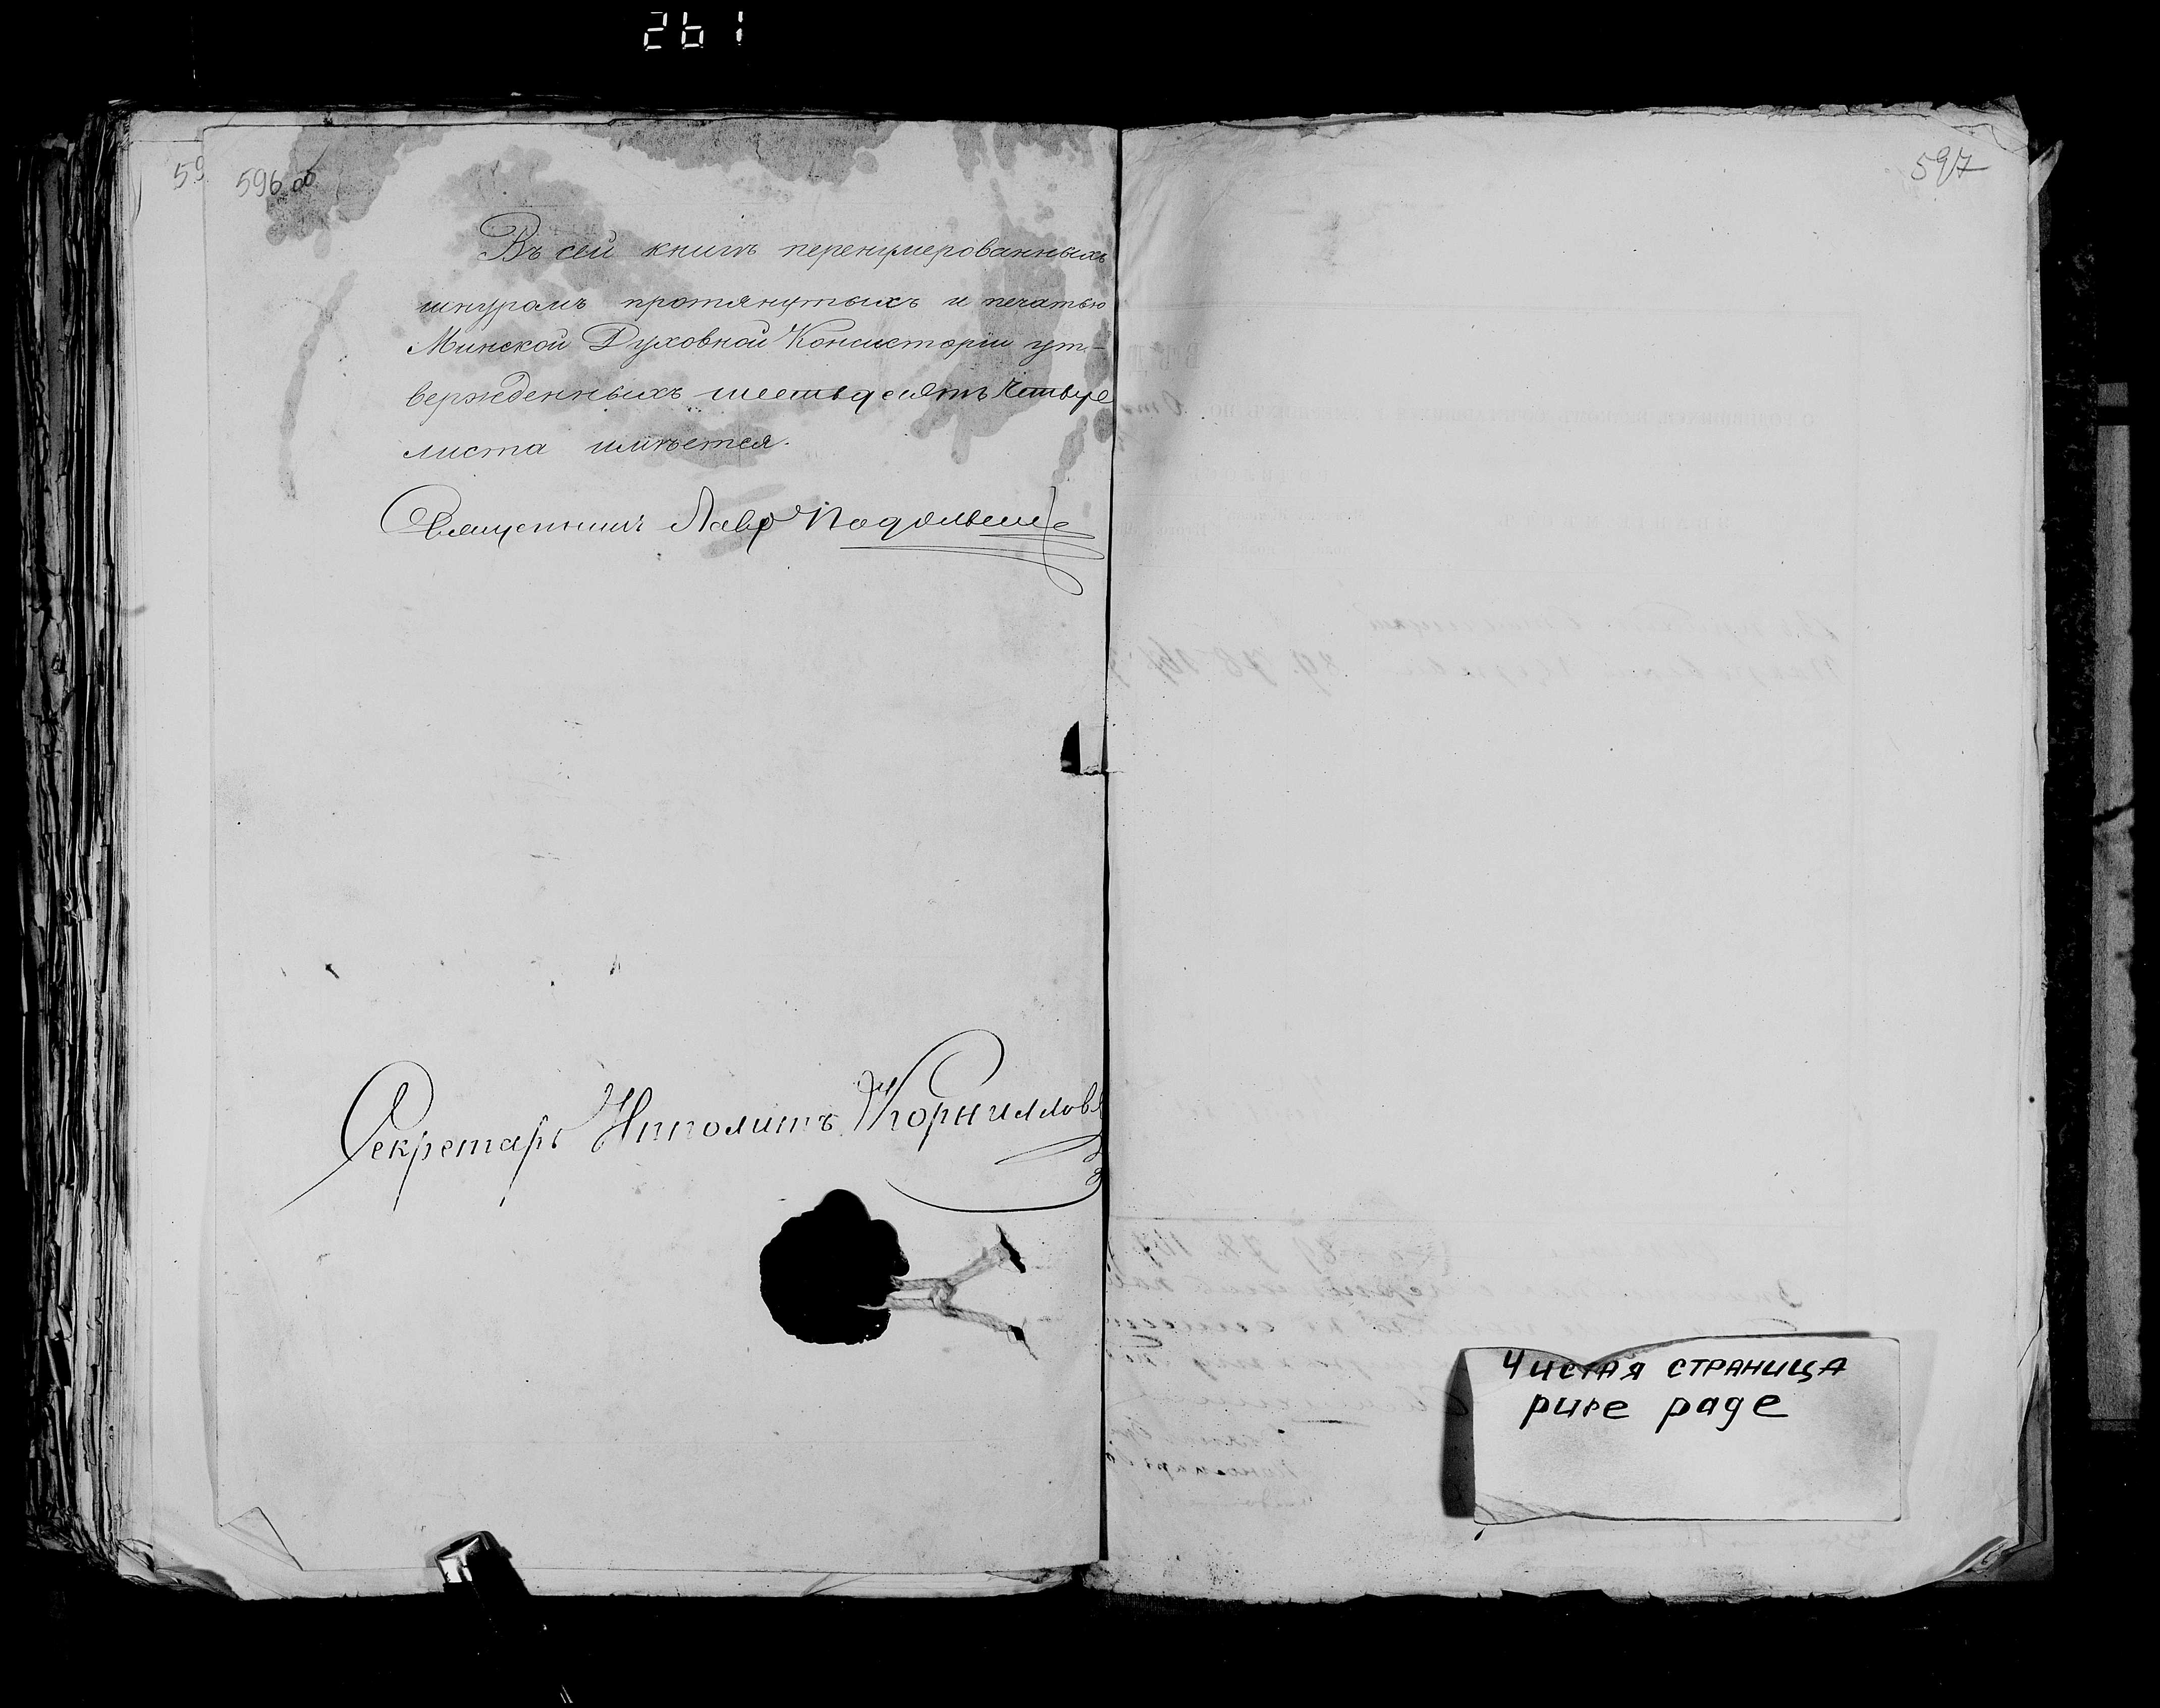 261
596 об
Въ сей книгѣ перенумерованныхъ
шнуромъ протянутыхъ и печатью
Минской Духовной Консисторіи ут-
вержденныхъ шестьдесятъ четыре
листа имѣется.
Священникъ Лавр
Секретарь Ипполитъ Корниллов
597
Чистая страница
pure page